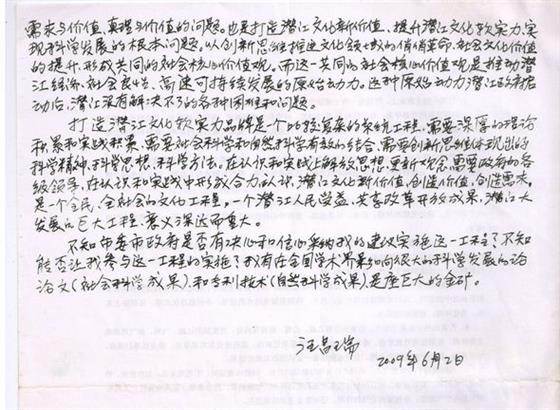 需求与价值,真理与价值的问题。也是打造潜江文化新价值、提升潜江文化软实力,实
现科学发展的根本问题。以创新思维推进文化领域的信仰革命,社会文化价值
的提升,形成共同的社会核心价值观。而这一共同的社会核心价值观是推动潜
江经济,社会良性、高速可持续发展的原始动力。这种原始动力潜江政府启
动后,潜江没有解决不了的各种困难和问题。
打造潜江文化软实力品牌是个比较复杂的系统工程,需要深厚的理论
积累和实践积累,需要社会科学和自然科学有效的结合,需要创新思维体现出的
科学精神,科学思想,科学方法。在认识和实践上解放思想,更新观念,需要政府和各
级领导,在认识和实践中形成合力,认识,潜江文化新价值,创造价值,创造需求。
是一个全民,全社会的文化工程,一个潜江人民受益,共享改革开放成果,潜江大
发展的巨大工程,意义深远而重大。
不知市委市政府是否有决心和信心采纳我的建议实施这一工程?不知
能否让我参与这一工程的实施?我有在全国学术界影响很大的科学发展的论
论文(社会科学成果),和专利技术(自然科学成果)是座巨大的金矿。
汪昌瑞
2009年6月2日